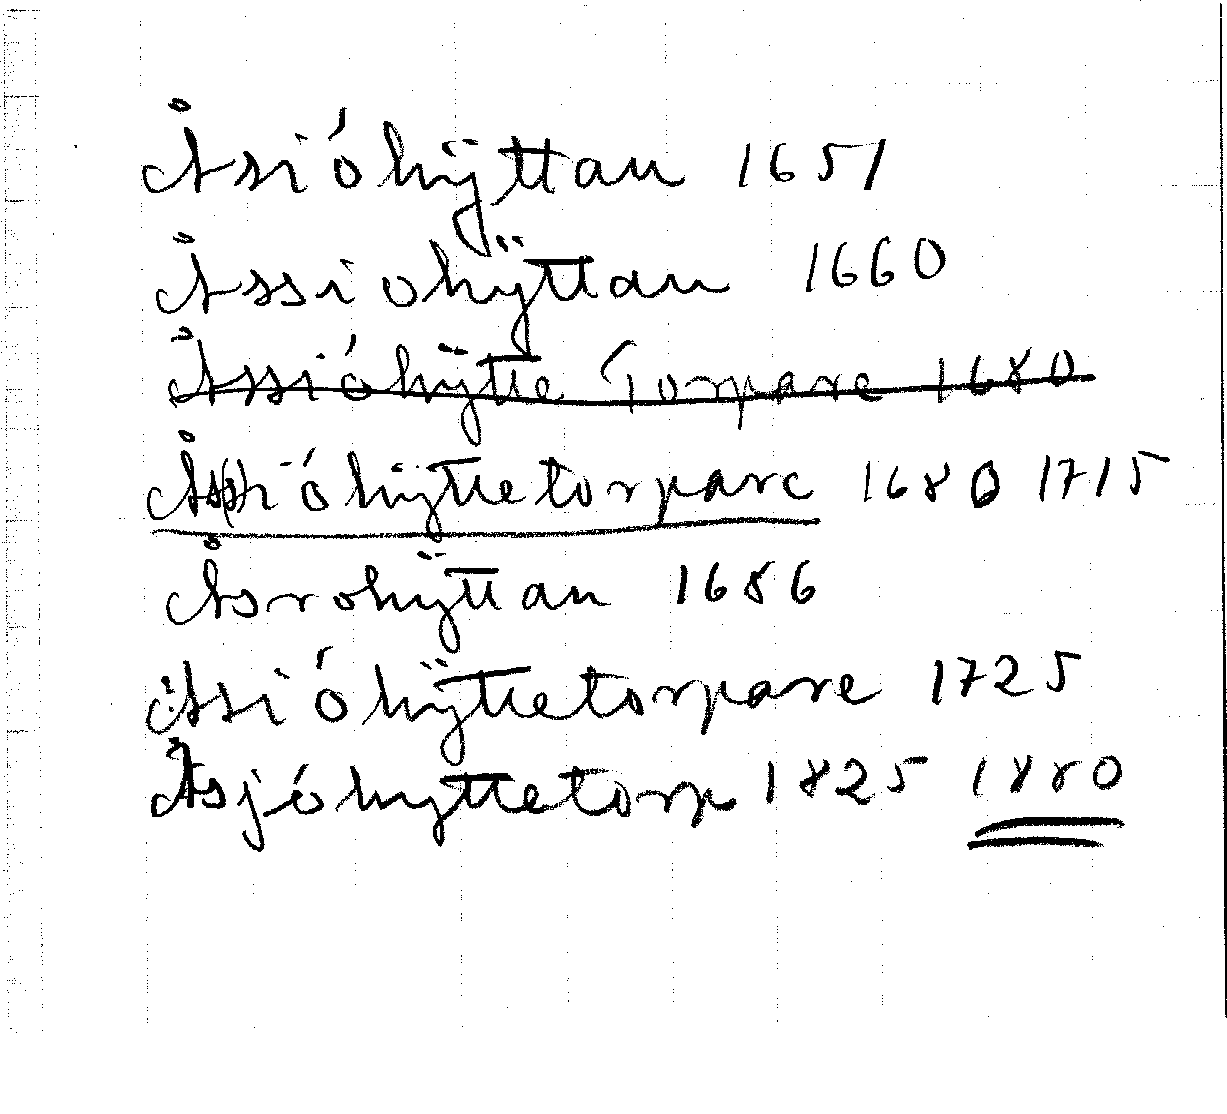 Åsióhÿttan 1651
Åssiohÿttan 1660
Åssióhÿtte Torpare 1680
Åssióhÿttetorpare 1680 1715
Åsrohÿttan 1686
Åsióhÿttetorpare 1725
Åsjóhyttetorp 1825 1880